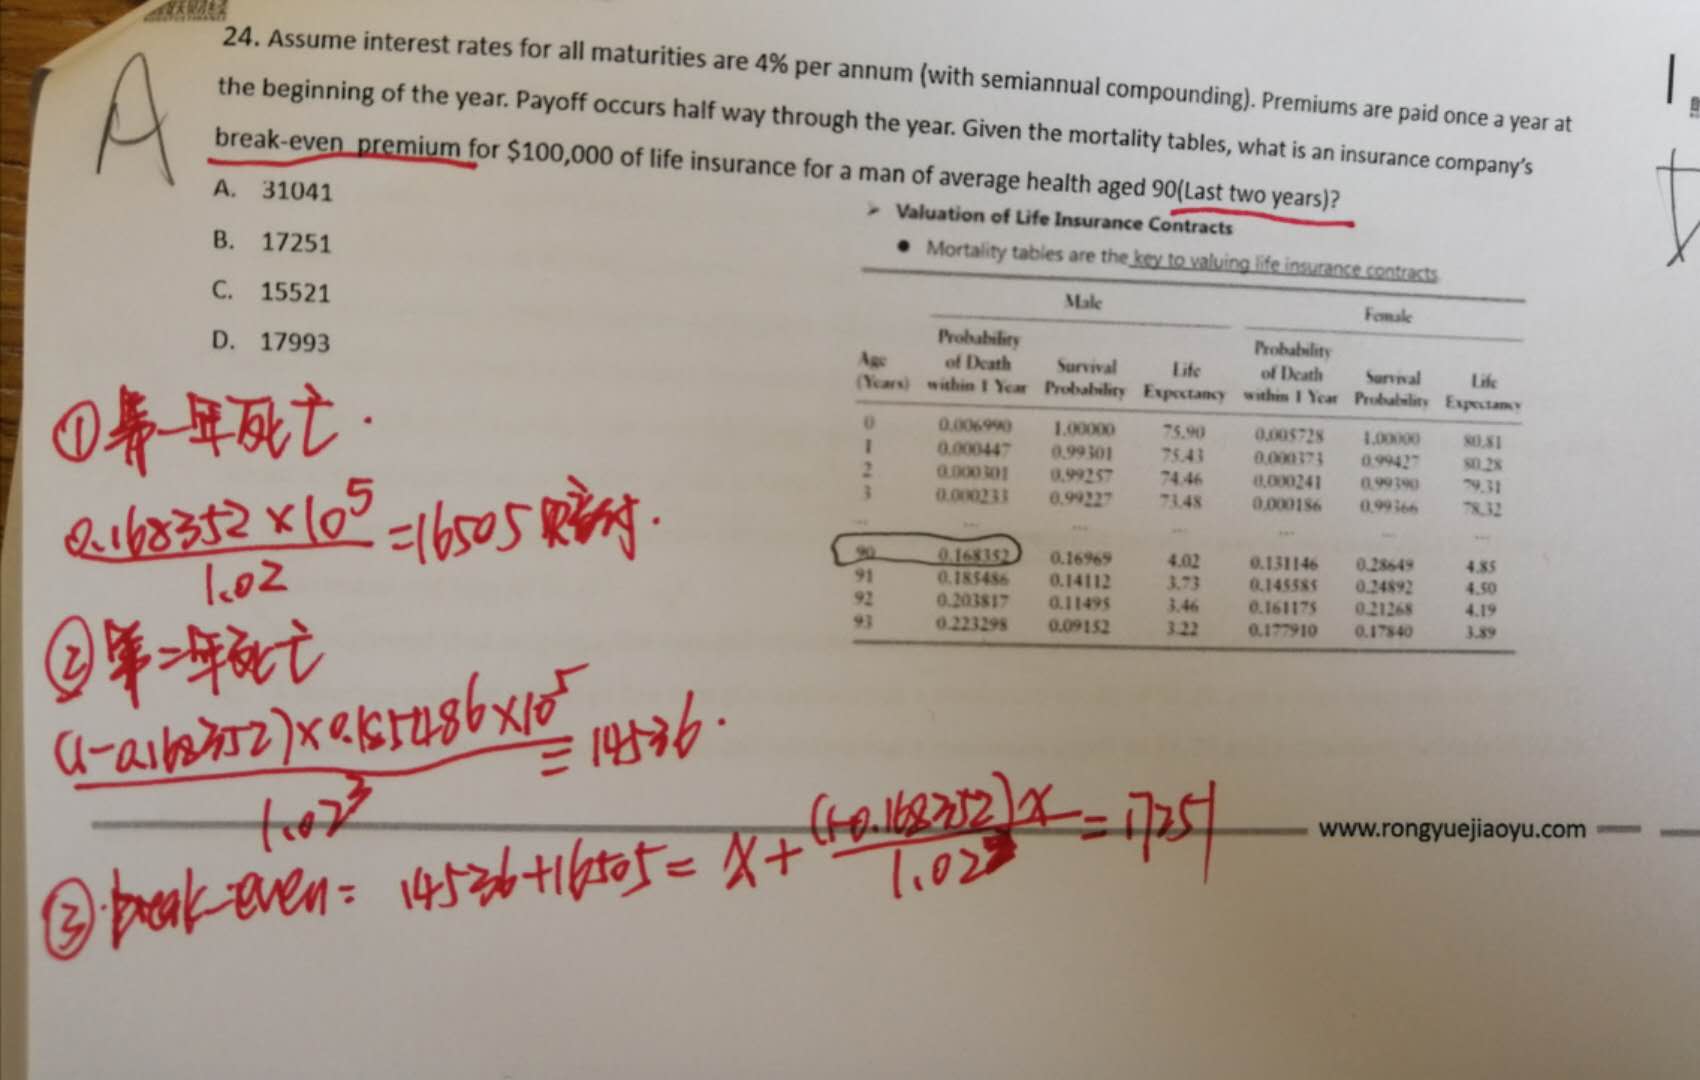 A
24. Assume interest rates for all maturities are 4% per annum (with semiannual compounding). Premiums are paid once a year at
the beginning of the year. Payoff occurs half way through the year. Given the mortality tables, what is an insurance company's
break-even premium for $100,000 of life insurance for a man of average health aged 90(Last two years)?
A. 31041
B. 17251
C. 15521
D. 17993
➢ Valuation of Life Insurance Contracts
● Mortality tables are the key to valuing life insurance contracts
Male Female
Age (Years) Probability of Death within 1 Year Survival Probability Life Expectancy Probability of Death within 1 Year Survival Probability Life Expectancy
0 0.006990 1.00000 75.90 0.005728 1.00000 80.81
1 0.000447 0.99301 75.43 0.000373 0.99427 80.28
2 0.000301 0.99257 74.46 0.000241 0.99390 79.31
3 0.000233 0.99227 73.48 0.000186 0.99366 78.32
... ... ... ... ... ... ...
90 0.168352 0.16969 4.02 0.131146 0.28649 4.85
91 0.185486 0.14112 3.73 0.145585 0.24892 4.50
92 0.203817 0.11495 3.46 0.161175 0.21268 4.19
93 0.223298 0.09152 3.22 0.177910 0.17840 3.89
① 第一年死亡.
0.168352×10⁵/1.02=16505 赔付.
② 第二年死亡
(1-0.168352)×0.185486×10⁵/1.02³=14536.
③. break-even= 14536+16505= x+(1-0.168352)x/1.02²=17251
www.rongyuejiaoyu.com